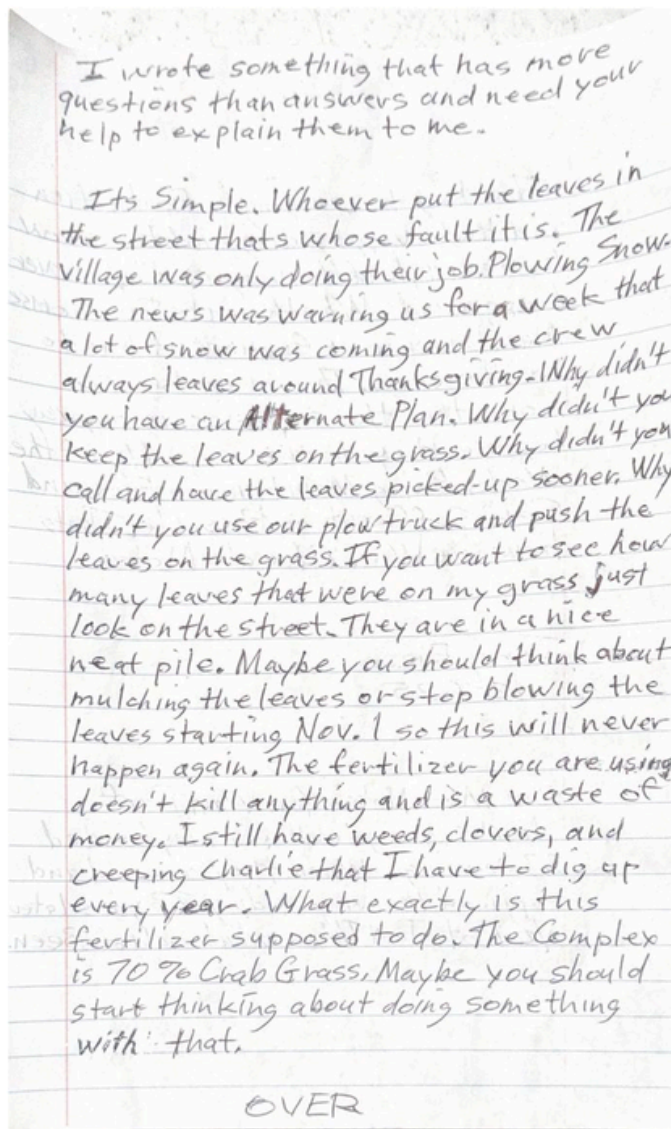 I wrote something that has more
questions than answers and need your
help to explain them to me.
Its Simple. Whoever put the leaves in
the street thats whose fault it is. The
village was only doing their job. Plowing Snow.
The news was warning us for a week that
a lot of snow was coming and the crew
always leaves around Thanksgiving. Why didn't
you have an Alternate Plan. Why didn't you
keep the leaves on the grass. Why didn't you
call and have the leaves picked-up sooner. Why
didn't you use our plow truck and push the
leaves on the grass. If you want to see how
many leaves that were on my grass just
look on the street. They are in a nice
neat pile. Maybe you should think about
mulching the leaves or stop blowing the
leaves starting Nov. 1 so this will never
happen again. The fertilizer you are using
doesn't kill anything and is a waste of
money. I still have weeds, clovers, and
creeping Charlie that I have to dig up
every year. What exactly is this
fertilizer supposed to do. The Complex
is 70% Crab Grass. Maybe you should
start thinking about doing something
with that.
OVER